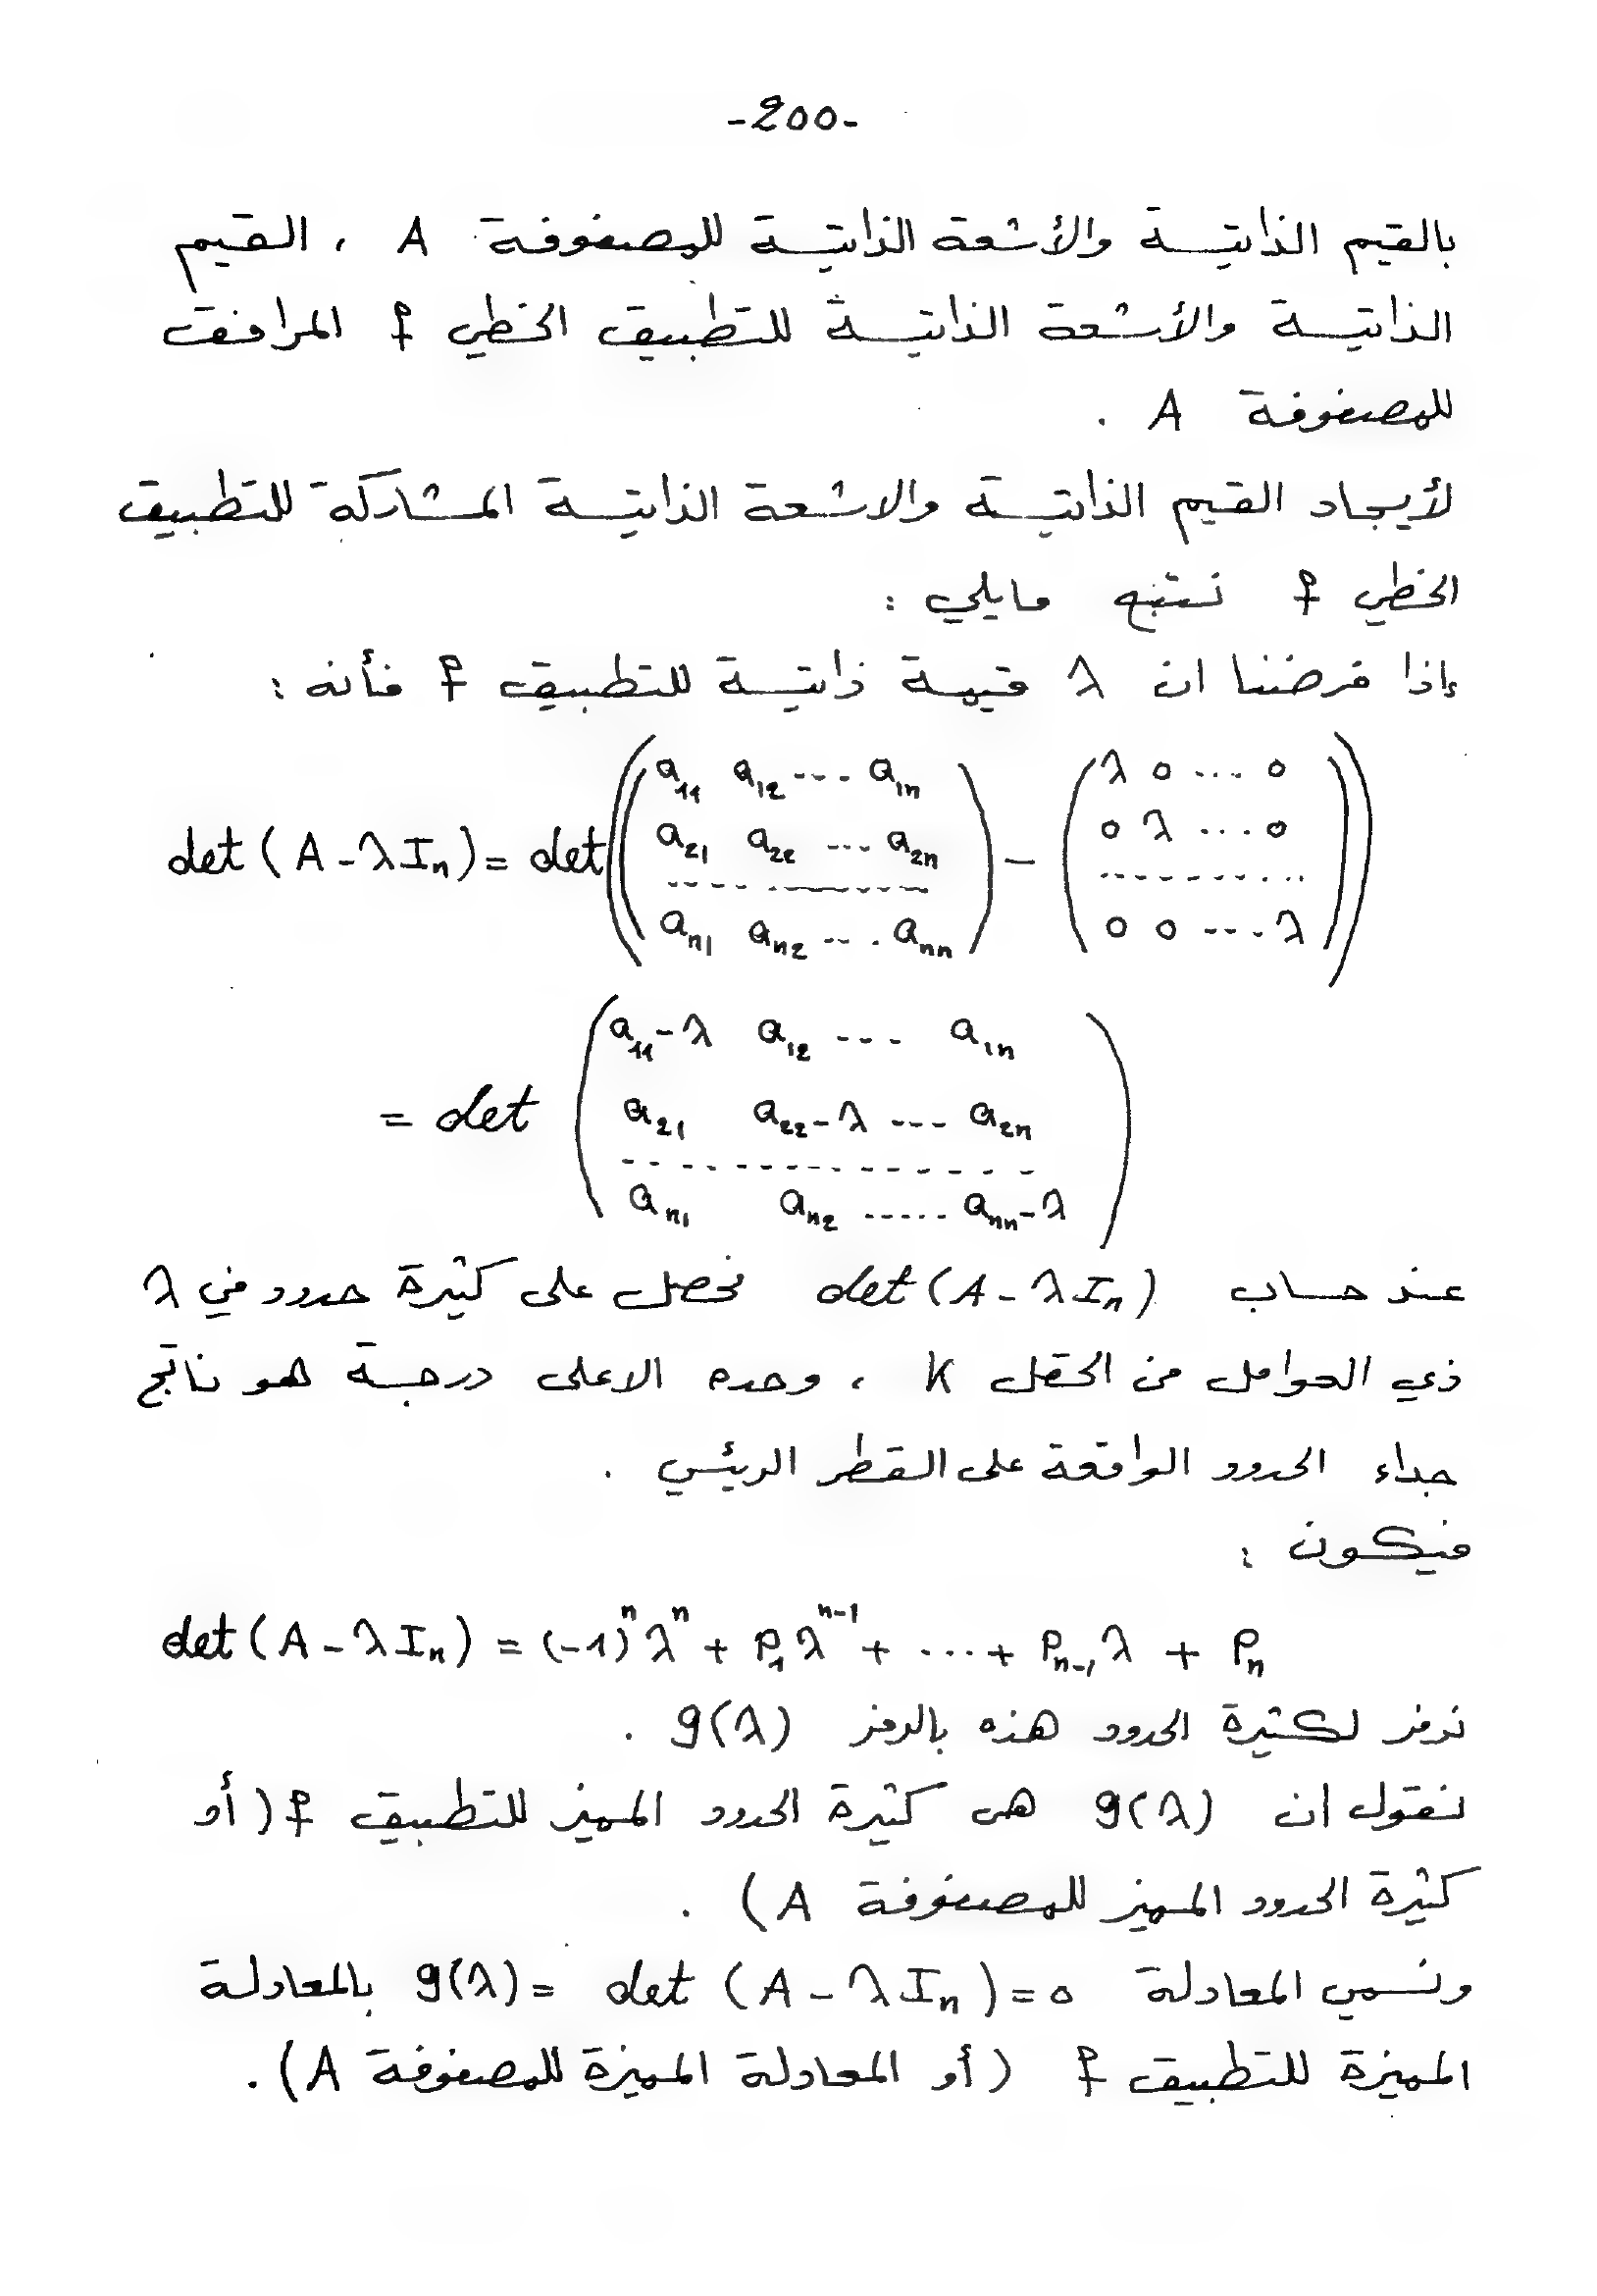 -200-
بالقيم الذاتية والأشعة الذاتية للمصفوفة A ، القيم
الذاتية والأشعة الذاتية للتطبيق الخطي f المرافق
للمصفوفة A .
لأيجاد القيم الذاتية والاشعة الذاتية المشاركة للتطبيق
الخطي f نتبع مايلي :
إذا فرضنا ان λ قيمة ذاتية للتطبيق f فأنه :
det (A - λ I_n) = det ( ( a_11 a_12 --- a_1n ) - ( λ 0 ---- 0 ) )
a_21 a_22 --- a_2n 0 λ ---- 0
a_n1 a_n2 ---- a_nn 0 0 ---- λ
= det ( a_11 - λ a_12 ---- a_1n )
a_21 a_22 - λ ---- a_2n
a_n1 a_n2 ------ a_nn - λ
عند حساب det (A - λ I_n) نحصل على كثيرة حدود في λ
ذي العوامل من الحقل K ، وحده الاعلى درجة هو ناتج
جداء الحدود الواقعة على القطر الرئيسي .
فيكون :
det (A - λ I_n) = (-1)^n λ^n + P_1 λ^{n-1} + ... + P_{n-1} λ + P_n
نرمز لكثيرة الحدود هذه بالرمز g(λ) .
نقول ان g(λ) هي كثيرة الحدود المميز للتطبيق f (أو
كثيرة الحدود المميز للمصفوفة A) .
ونسمي المعادلة g(λ) = det (A - λ I_n) = 0 بالمعادلة
المميزة للتطبيق f (أو المعادلة المميزة للمصفوفة A) .